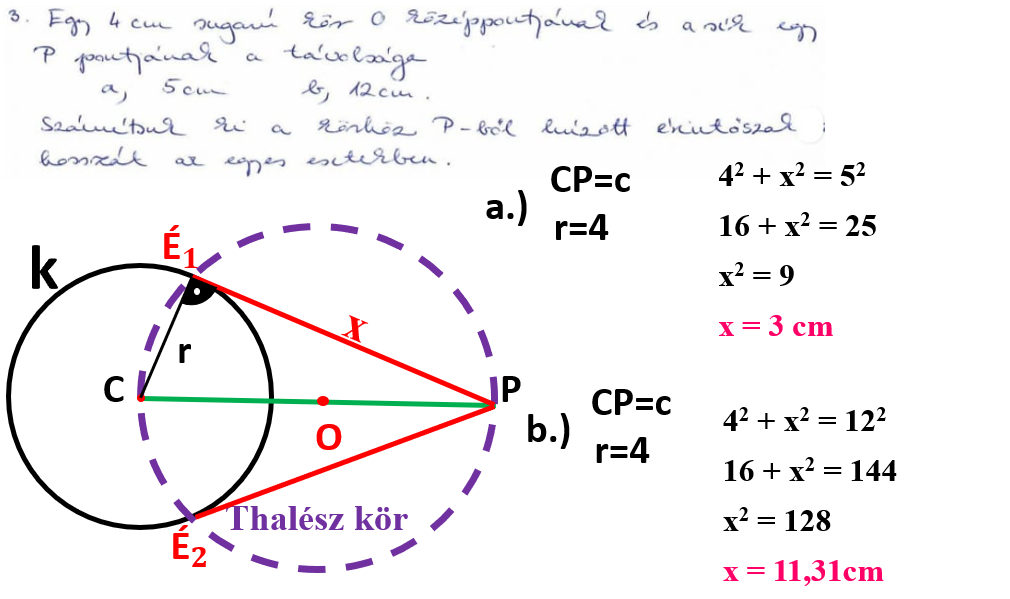 3. Egy 4 cm sugarú kör O középpontjának és a sík egy
P pontjának a távolsága
a, 5cm b, 12cm.
Számítsuk ki a körhöz P-ből húzott érintőszak
hosszát az egyes esetekben.
a.) CP=c
r=4
4² + x² = 5²
16 + x² = 25
x² = 9
x = 3 cm
k
É₁
x
r
C
P
O
Thalész kör
É₂
b.) CP=c
r=4
4² + x² = 12²
16 + x² = 144
x² = 128
x = 11,31cm